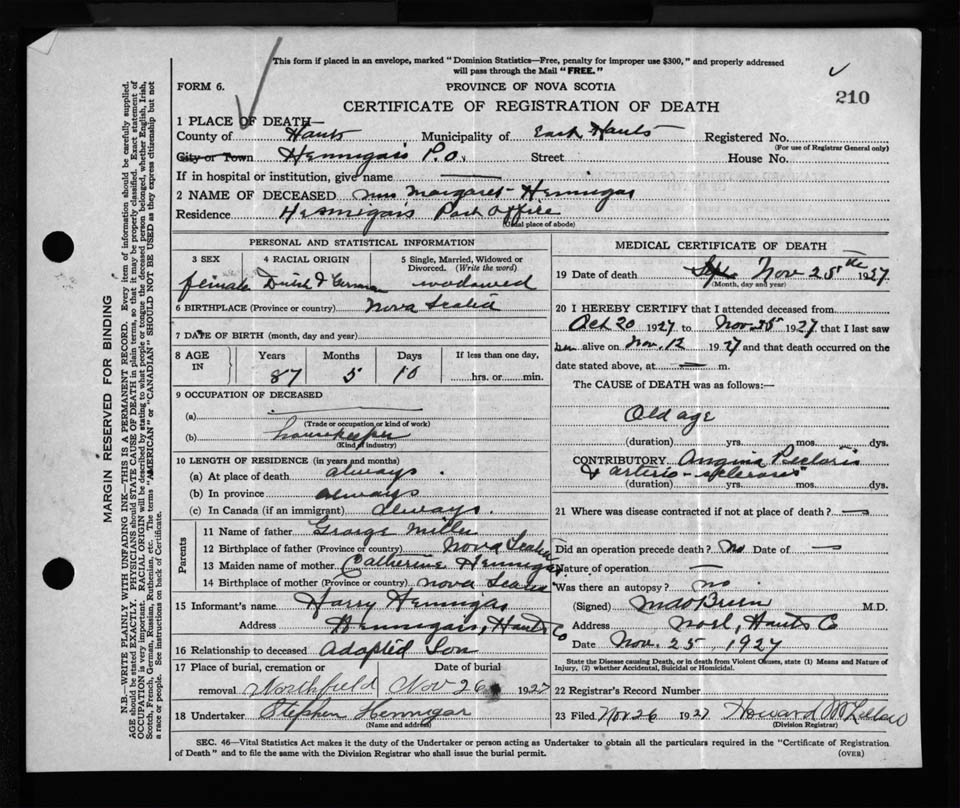 This form if placed in an envelope, marked "Dominion Statistics—Free, penalty for improper use $300," and properly addressed
will pass through the Mail "FREE."
FORM 6.
PROVINCE OF NOVA SCOTIA
CERTIFICATE OF REGISTRATION OF DEATH
210
1 PLACE OF DEATH—
County of Hants Municipality of East Hants Registered No.
(For use of Registrar General only)
City or Town Hennigar's P.O. Street House No.
If in hospital or institution, give name —
2 NAME OF DECEASED Mrs Margaret Hennigar
Residence Hennigar's Post Office
(Usual place of abode)
PERSONAL AND STATISTICAL INFORMATION
3 SEX 4 RACIAL ORIGIN 5 Single, Married, Widowed or Divorced. (Write the word)
female German widowed
6 BIRTHPLACE (Province or country) Nova Scotia
7 DATE OF BIRTH (month, day and year)
8 AGE IN Years Months Days If less than one day,
87 5 10 hrs. or min.
9 OCCUPATION OF DECEASED
(a) —
(Trade or occupation or kind of work)
(b) housekeeper
(Kind of industry)
10 LENGTH OF RESIDENCE (in years and months)
(a) At place of death always
(b) In province always
(c) In Canada (if an immigrant) always.
Parents
11 Name of father George Miller
12 Birthplace of father (Province or country) Nova Scotia
13 Maiden name of mother Catherine Hennigar
14 Birthplace of mother (Province or country) Nova Scotia
15 Informant's name Harry Hennigar
Address Hennigars, Hants Co
16 Relationship to deceased Adopted Son
17 Place of burial, cremation or removal Date of burial
Northfield Nov 26 1927
18 Undertaker Stephen Hennigar
(Name and address)
MEDICAL CERTIFICATE OF DEATH
19 Date of death Nov 25th 1927
(Month, day and year)
20 I HEREBY CERTIFY that I attended deceased from
Oct 20 1927 to Nov. 25 1927 that I last saw
her alive on Nov. 12 1927 and that death occurred on the
date stated above, at — m.
The CAUSE of DEATH was as follows:—
Old age
(duration) yrs. mos. dys.
CONTRIBUTORY Angina Pectoris
& arterio-sclerosis
(duration) yrs. mos. dys.
21 Where was disease contracted if not at place of death? —
Did an operation precede death? no Date of —
Nature of operation —
Was there an autopsy? no
(Signed) M.D.
Address Noel, Hants Co
Date Nov. 25, 1927
State the Disease causing Death, or in death from Violent Causes, state (1) Means and Nature of
Injury, (2) whether Accidental, Suicidal or Homicidal.
22 Registrar's Record Number
23 Filed Nov 26 1927 Howard
(Division Registrar)
SEC. 46—Vital Statistics Act makes it the duty of the Undertaker or person acting as Undertaker to obtain all the particulars required in the "Certificate of Registration
of Death" and to file the same with the Division Registrar who shall issue the burial permit.
(OVER)
MARGIN RESERVED FOR BINDING
N.B.—WRITE PLAINLY WITH UNFADING INK—THIS IS A PERMANENT RECORD. Every item of information should be carefully supplied.
AGE should be stated EXACTLY. PHYSICIANS should STATE CAUSE OF DEATH in plain terms, so that it may be properly classified. Exact statement of
OCCUPATION is very important. RACIAL ORIGIN will be described by stating to what people or tongue the deceased person belonged, whether English, Irish,
Scotch, French, German, Russian, Ruthenian, etc. The terms "AMERICAN" or "CANADIAN" SHOULD NOT BE USED as they express citizenship but not
a race or people. See instructions on back of Certificate.